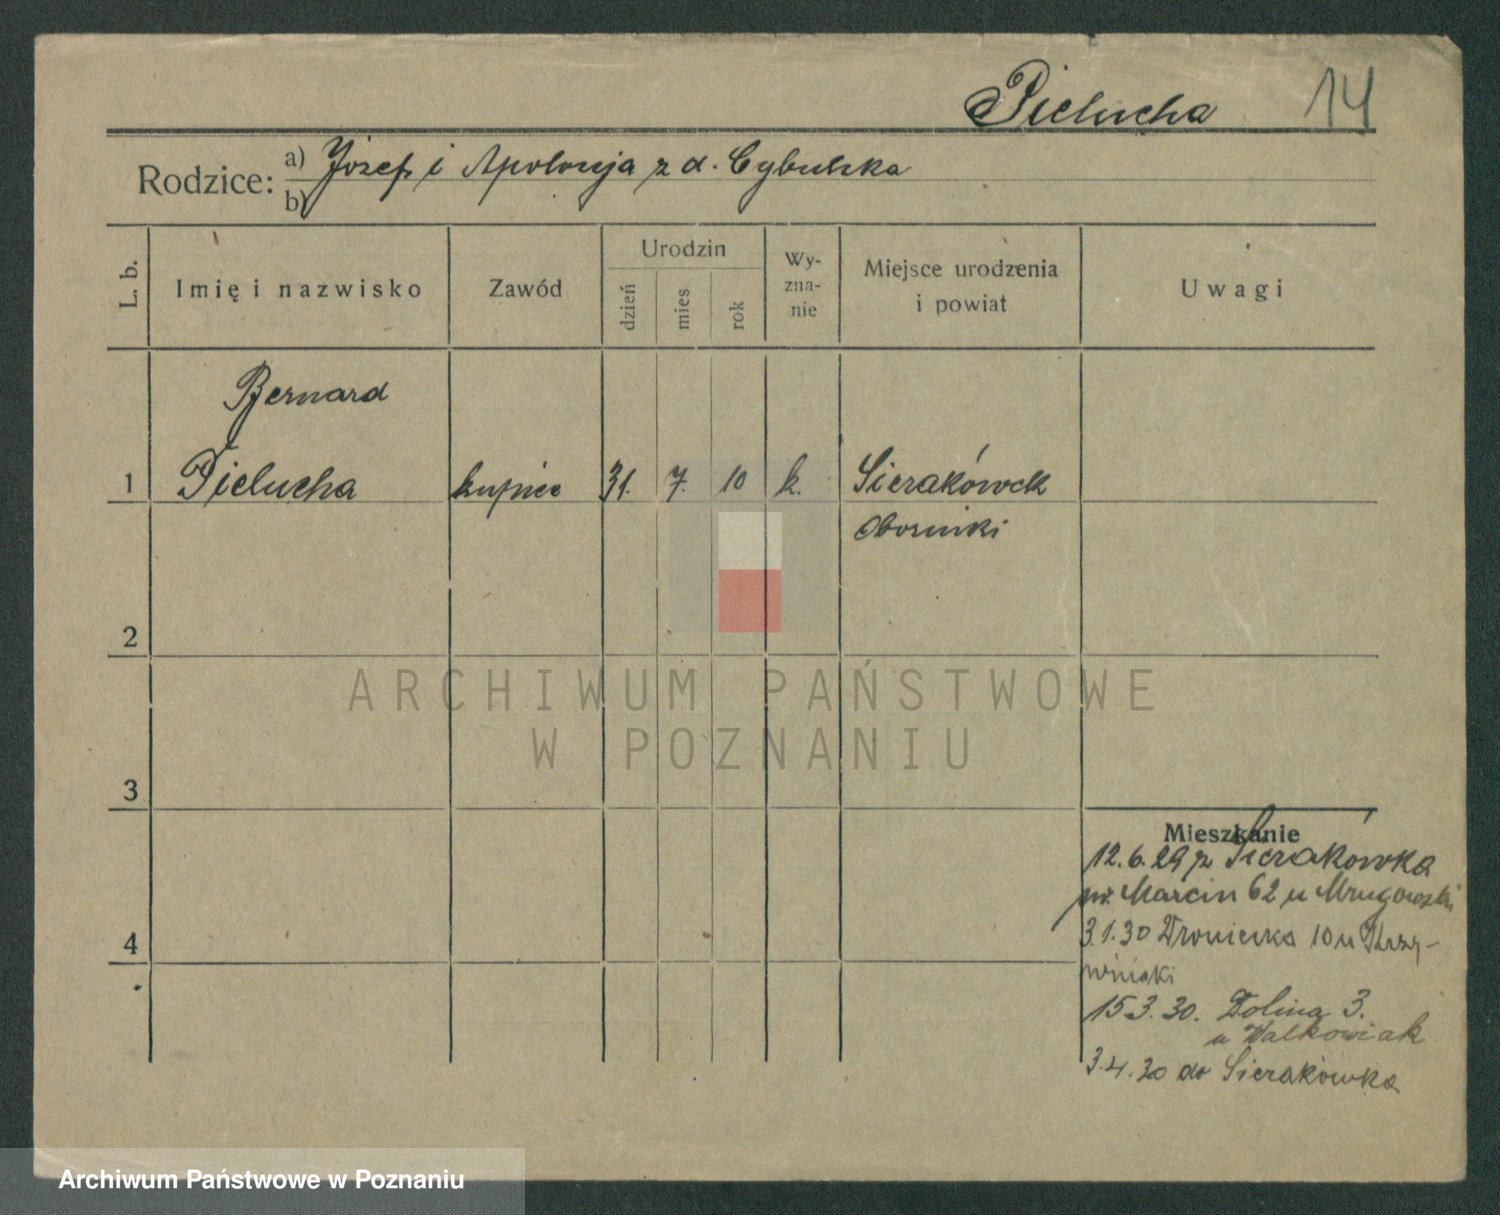 Pielucha 14
Rodzice: a) Józef i Apolonja z d. Cybulska
b)
L. b. Imię i nazwisko Zawód Urodzin dzień mies rok Wy-zna-nie Miejsce urodzenia i powiat Uwagi
Bernard
1 Pielucha kupiec 31. 7. 10 k. Sierakówek
Oborniki
2
ARCHIWUM PAŃSTWOWE
W POZNANIU
3
Mieszkanie
12.6.29 z Sierakówka
św. Marcin 62 u Mrugowski
4
3.1.30 Wroniecka 10 u Krzy-
wiński
15.3.30. Dolina 3.
u Walkowiak
3.4.30 do Sierakówka
Archiwum Państwowe w Poznaniu